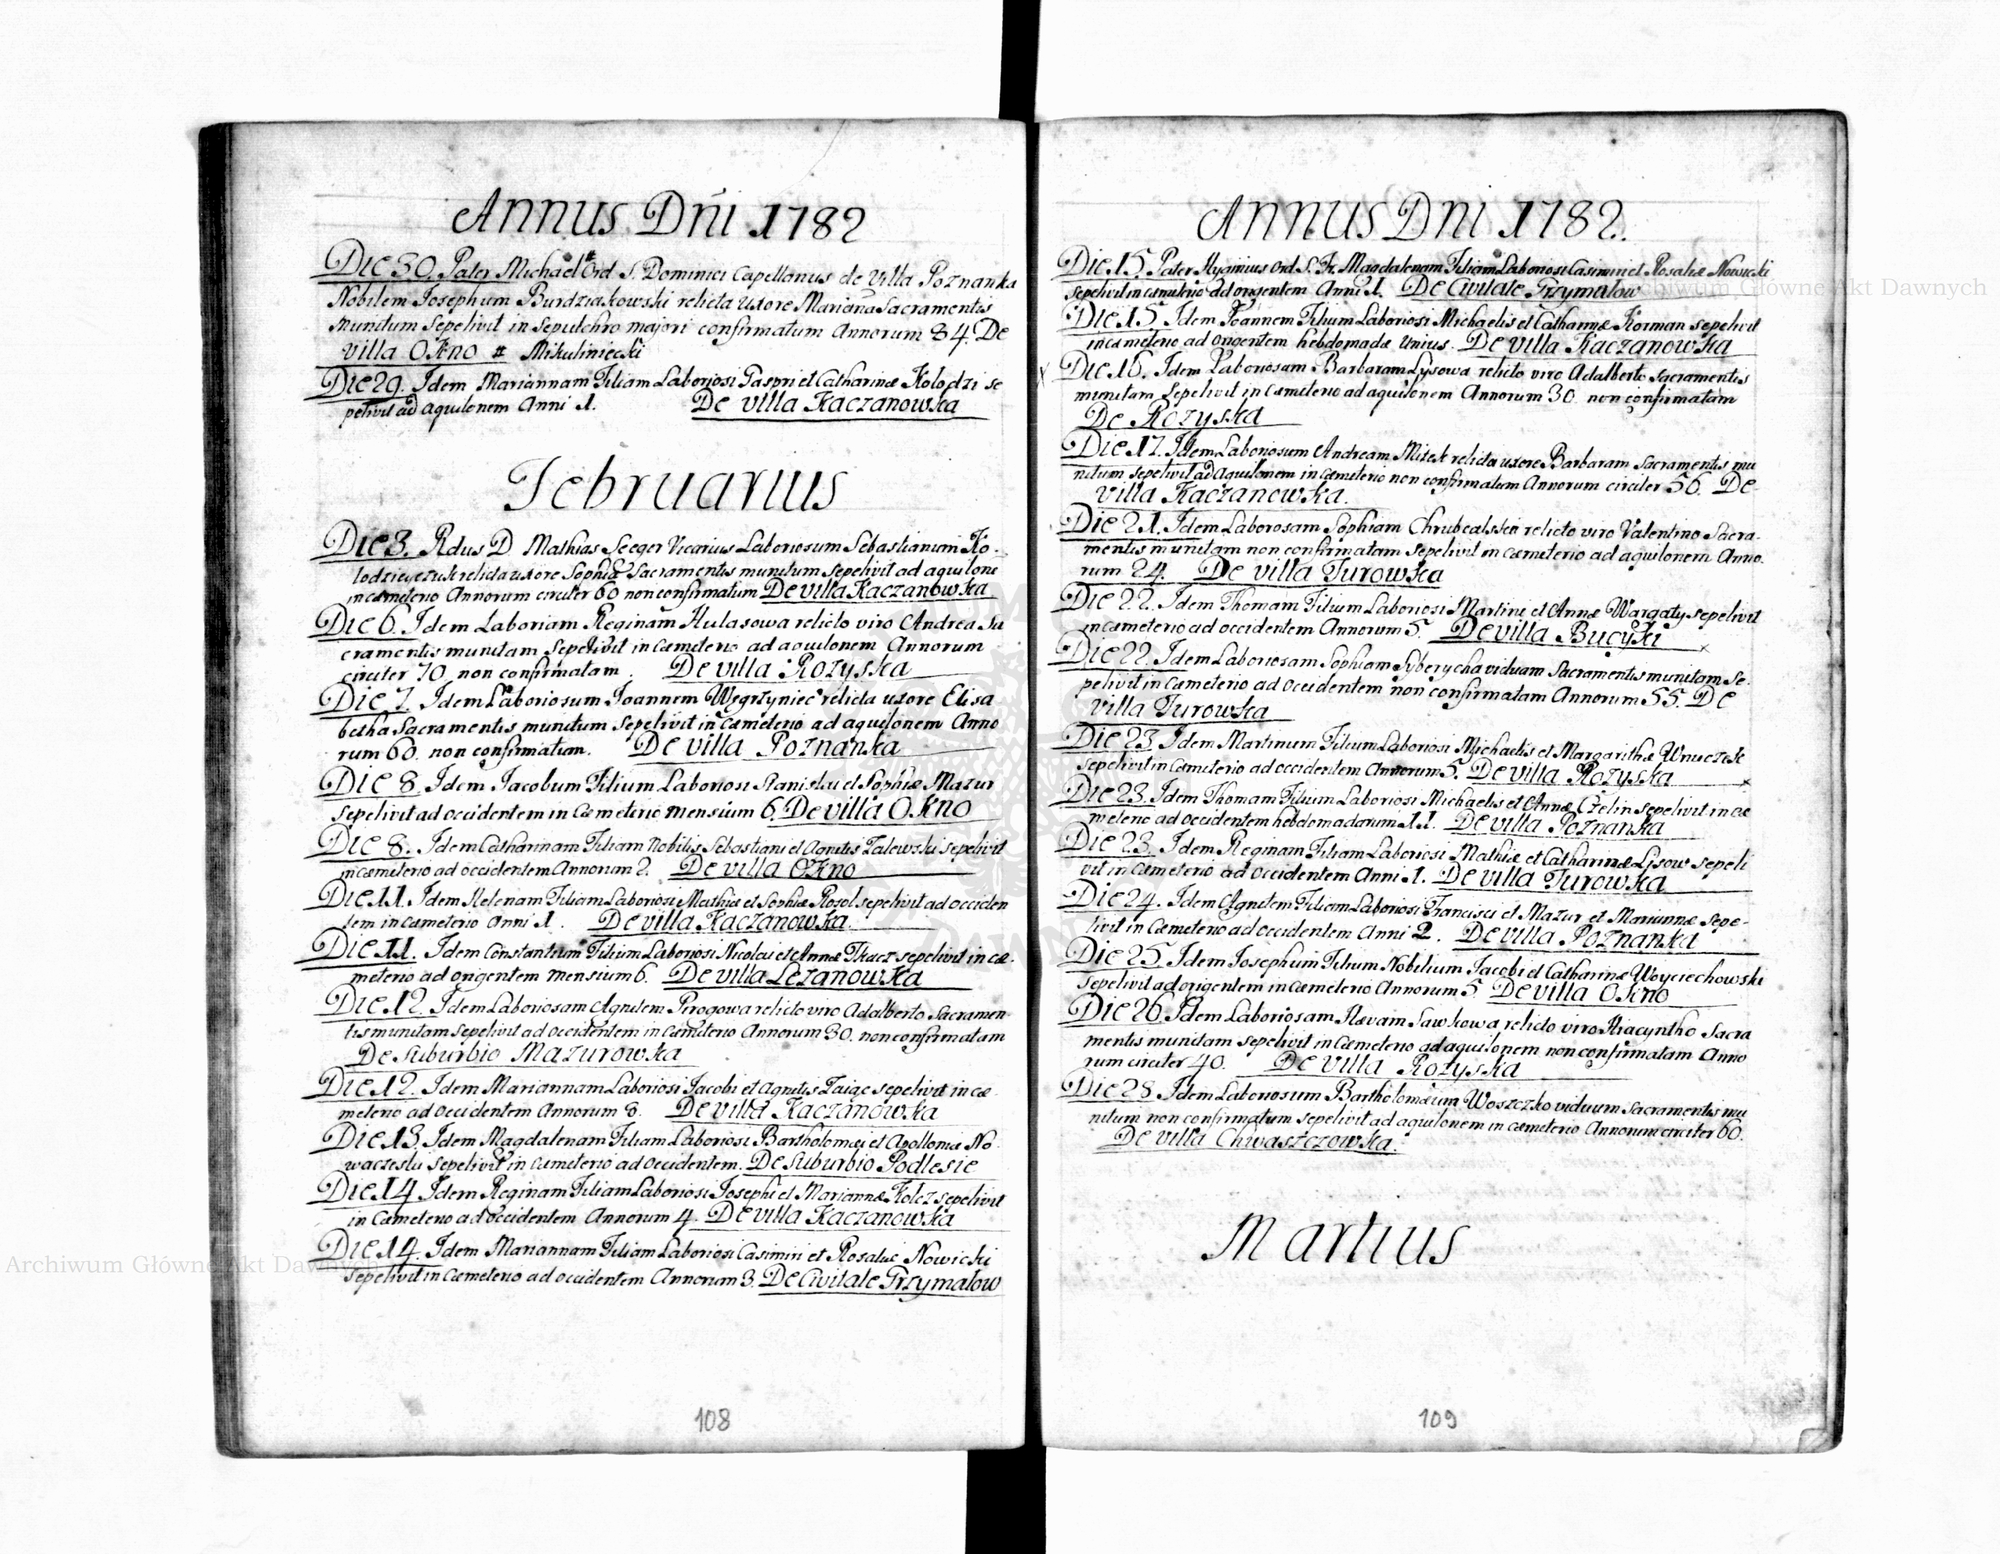 Annus Dñi 1782
Die 30. Pater Michael # Ord S. Dominici Capellanus de Villa Poznanka
Nobilem Josephum Burdziakowski relicta uxore Mariana Sacramentis
munitum sepelivit in sepulchro majori confirmatum Annorum 84. De
villa Okno # Mikuliniecki
Die 29. Idem Mariannam Filiam Laboriosi Gaspri et Catharinæ Kolodzi se
pelivit ad aquilonem Anni 1. De villa Kaczanowka
Februarius
Die 3. Rdus D. Mathias Seeger Vicarius Laboriosum Sebastianum Ko-
lodzieyczuk relicta uxore Sophia Sacramentis munitum Sepelivit ad aquilone
in cæmeterio Annorum circiter 60 non confirmatum De villa Kaczanowka
Die 6. Idem Laboriam Reginam Hulasowa relicto viro Andrea Sa
cramentis munitam sepelivit in Cæmeterio ad aquilonem Annorum
circiter 70 non confirmatam. De villa Rozyska
Die 7. Idem Laboriosum Joannem Węgrzyniec relicta uxore Elisa
betha Sacramentis munitum sepelivit in cæmeterio ad aquilonem Anno
rum 60. non confirmatum. De villa Poznanka
Die 8. Idem Jacobum Filium Laboriosi Stanislai et Sophiæ Mazur
Sepelivit ad occidentem in Cæmeterio mensium 6. De villa Okno
Die 8. Idem Catharinam Filiam nobilis Sebastiani et Agnetis Zalewski sepelivit
in cæmeterio ad occidentem Annorum 2. De villa Okno
Die 11. Idem Helenam Filiam Laboriosi Mathiæ et Sophiæ Rosol sepelivit ad occiden
tem in cæmeterio Anni 1. De villa Kaczanowka.
Die 11. Idem Constantinum Filium Laboriosi Nicolai et Annæ Tkacz sepelivit in cæ-
meterio ad origentem mensium 6. De villa Lezanowka
Die 12. Idem Laboriosam Agnetem Pirogowa relicto viro Adalberto Sacramen-
tis munitam sepelivit ad occidentem in cæmeterio Annorum 30. non confirmatam
De Suburbio Mazurowka
Die 12. Idem Mariannam Laboriosi Jacobi et Agnetis Zaiąc sepelivit in cæ-
meterio ad occidentem Annorum 8. De villa Kaczanowka
Die 13. Idem Magdalenam Filiam Laboriosi Bartholomæi et Apolloniæ No-
waczeslu Sepelivit in cæmeterio ad occidentem. De suburbio Podlesie
Die 14 Idem Reginam Filiam Laboriosi Josephi et Mariannæ Kolcz sepelivit
in Cæmeterio ad occidentem Annorum 4. De villa Kaczanowka
Die 14. Idem Mariannam Filiam Laboriosi Casimiri et Rosaliæ Nowicki
sepelivit in Cæmeterio ad occidentem Annorum 3. De Civitate Grzymalow
108
Annus Dni 1782.
Die 15. Pater Hyginius Ord. S. Fr. Magdalenam Filiam Laboriosi Casimiri et Rosaliæ Nowicki
sepelivit in cæmeterio ad origentem Anni 1. De Civitate Grzymalow
Die 15. Idem Joannem Filium Laboriosi Michaelis et Catharinæ Korman sepelivit
in cæmeterio ad origentem hebdomadæ unius. De villa Kaczanowka
Die 16. Idem Laboriosam Barbaram Lysowa relicto viro Adalberto Sacramentis
munitam sepelivit in Cæmeterio ad aquilonem Annorum 30 non confirmatam
De Rozyska
Die 17. Idem Laboriosum Andream Misek relicta uxore Barbaram Sacramentis mu
nitum sepelivit ad aquilonem in cæmeterio non confirmatum Annorum circiter 56. De
villa Kaczanowka.
Die 21. Idem Laborosam Sophiam Chrubcalska relicto viro Valentino Sacra-
mentis munitam non confirmatam sepelivit in cæmeterio ad aquilonem Anno.
rum 24. De villa Turowka
Die 22. Idem Thomam Filium Laboriosi Martini et Annæ Wargaty sepelivit
in cæmeterio ad occidentem Annorum 5. De villa Bucyki
Die 22. Idem Laboriosam Sophiam Syberycha viduam Sacramentis munitam se-
pelivit in cæmeterio ad occidentem non confirmatam Annorum 55. De
villa Turowka
Die 23 Idem Martinum Filium Laboriosi Michaelis et Margarithæ Wnuczek
sepelivit in Cæmeterio ad occidentem Annorum 5. De villa Rozyska
Die 23. Idem Thomam Filium Laboriosi Michaelis et Annæ Czelin sepelivit in cæ
meterio ad occidentem hebdomadarum 11. De villa Poznanka
Die 23. Idem Reginam Filiam Laboriosi Mathiæ et Catharinæ Lysow sepeli
vit in Cæmeterio ad occidentem Anni 1. De villa Turowka
Die 24. Idem Agnetem Filiam Laboriosi Francisci et Mazur et Mariannæ sepe-
livit in Cæmeterio ad occidentem Anni 2. De villa Poznanka
Die 25. Idem Josephum Filium Nobilium Jacobi et Catharinæ Woyciechowski
sepelivit ad origentem in cæmeterio Annorum 5. De villa Okno
Die 26. Idem Laboriosam Ævam Sawkowa relicto viro Hiacyntho Sacra
mentis munitam sepelivit in Cæmeterio ad aquilonem non confirmatam Anno
rum circiter 40. De villa Rozyska
Die 28. Idem Laboriosum Bartholomæum Woszczko viduum Sacramentis mu
nitum non confirmatum sepelivit ad aquilonem in cæmeterio Annorum circiter 60.
De villa Chwaszczowka.
Martius
109
Archiwum Główne Akt Dawnych
Archiwum Główne Akt Dawnych